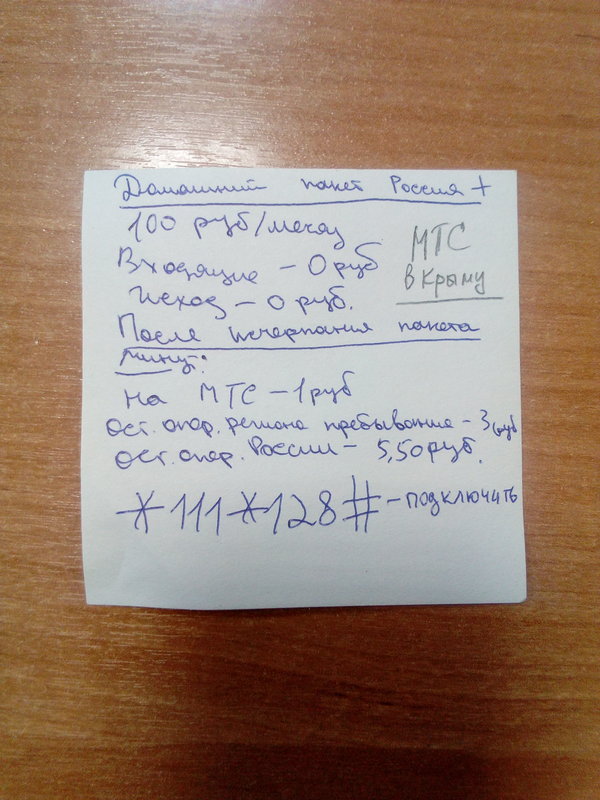 Домашний пакет Россия +
100 руб/месяц
МТС
в Крыму
Входящие - 0 руб
Исход - 0 руб.
После исчерпания пакета
минут:
на МТС - 1 руб
ост. опер. региона пребывание - 3 руб
ост. опер. России - 5,50 руб.
*111*128# - подключить